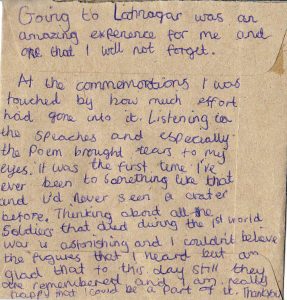 Going to Latnagar was an
amazing experience for me and
one that I will not forget.
At the commemorations I was
touched by how much effort
had gone into it. Listening to
the speaches and especially
the Poem brought tears to my
eyes. It was the first time I've
ever been to something like that
and I'd never seen a crater
before. Thinking about all the
Soldiers that died during the 1st world
war is astonishing and I couldn't believe
the figures that I heard but am
glad that to this day still they
are remembered and I am really
happy that I could be a Part of it. Thankyou